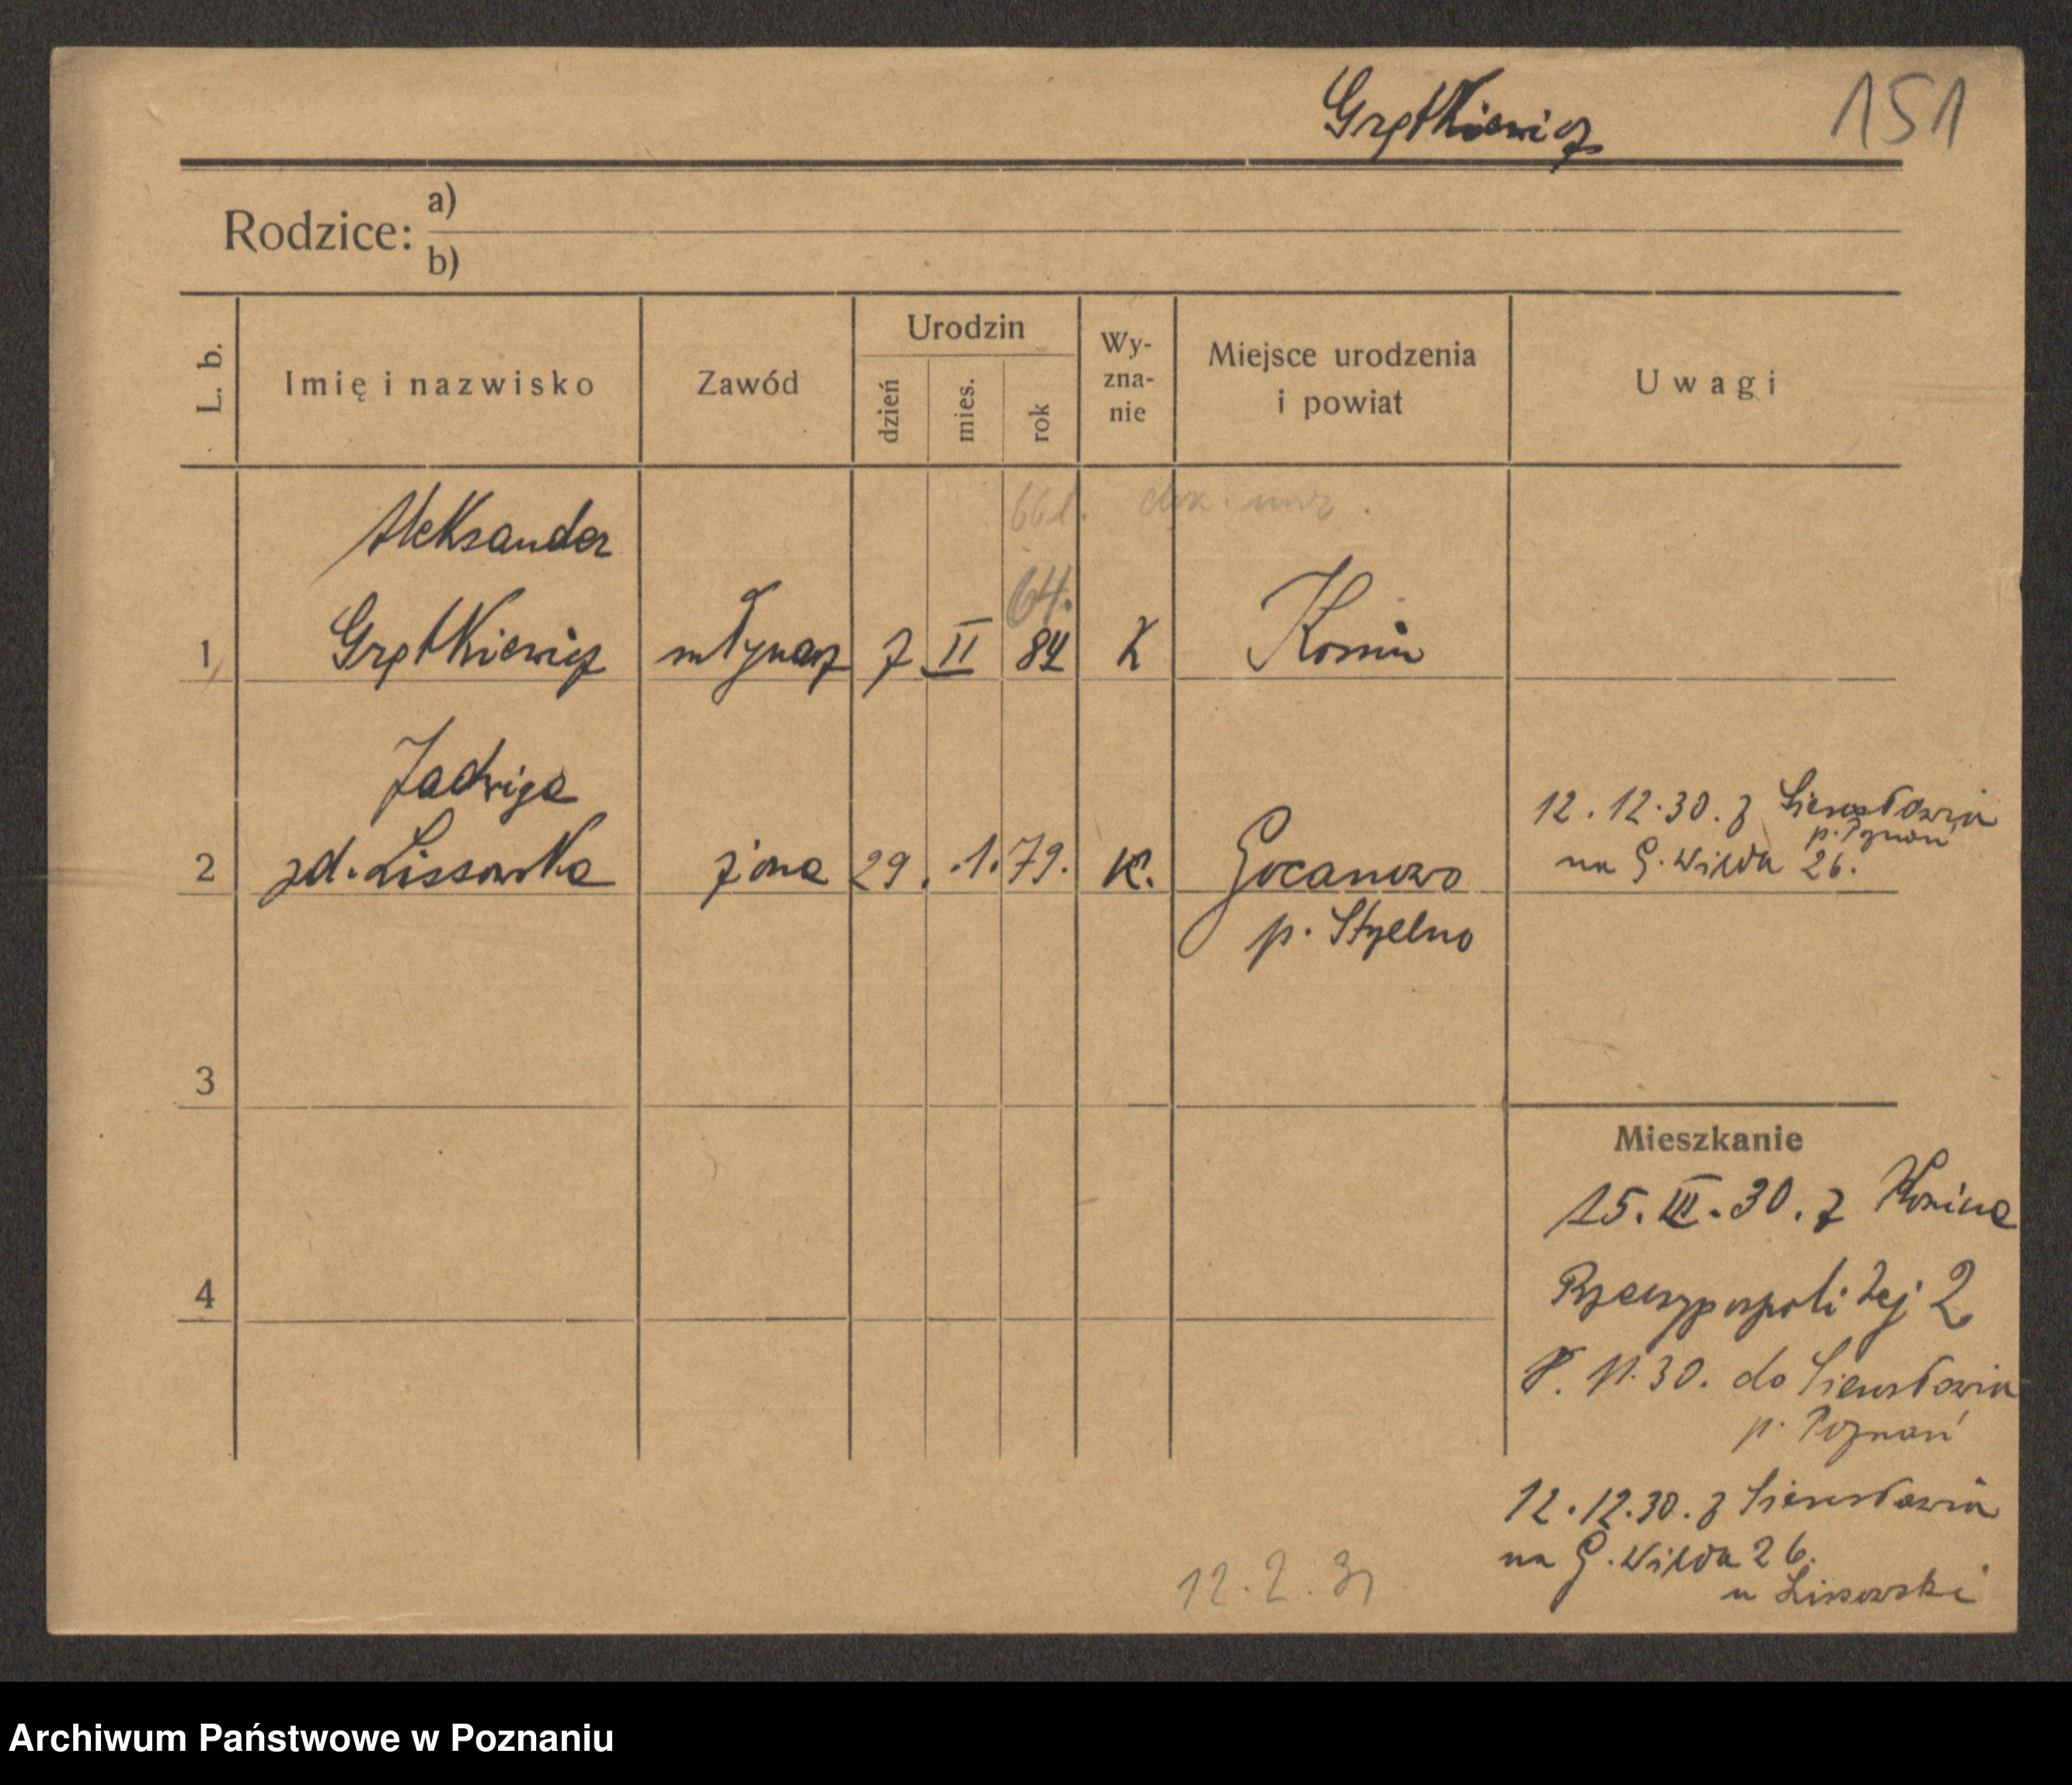 Grętkiewicz 151
Rodzice: a)
b)
L. b. Imię i nazwisko Zawód Urodzin dzień mies. rok Wy-zna-nie Miejsce urodzenia i powiat Uwagi
Aleksander
64.
1 Grętkiewicz młynarz 7 II 84 k Konin
Jadwiga
12.12.30. z
p. Poznań
2 zd. Lissowska żona 29. 1. 79. k. Gocanowo na G. Wilda 26.
p. Strzelno
3
Mieszkanie
15. III. 30. z Konina
4 Rzeczypospolitej 2
11.30. do
p. Poznań
12.12.30. z
na G. Wilda 26.
12.2.31 u Lissowski
Archiwum Państwowe w Poznaniu